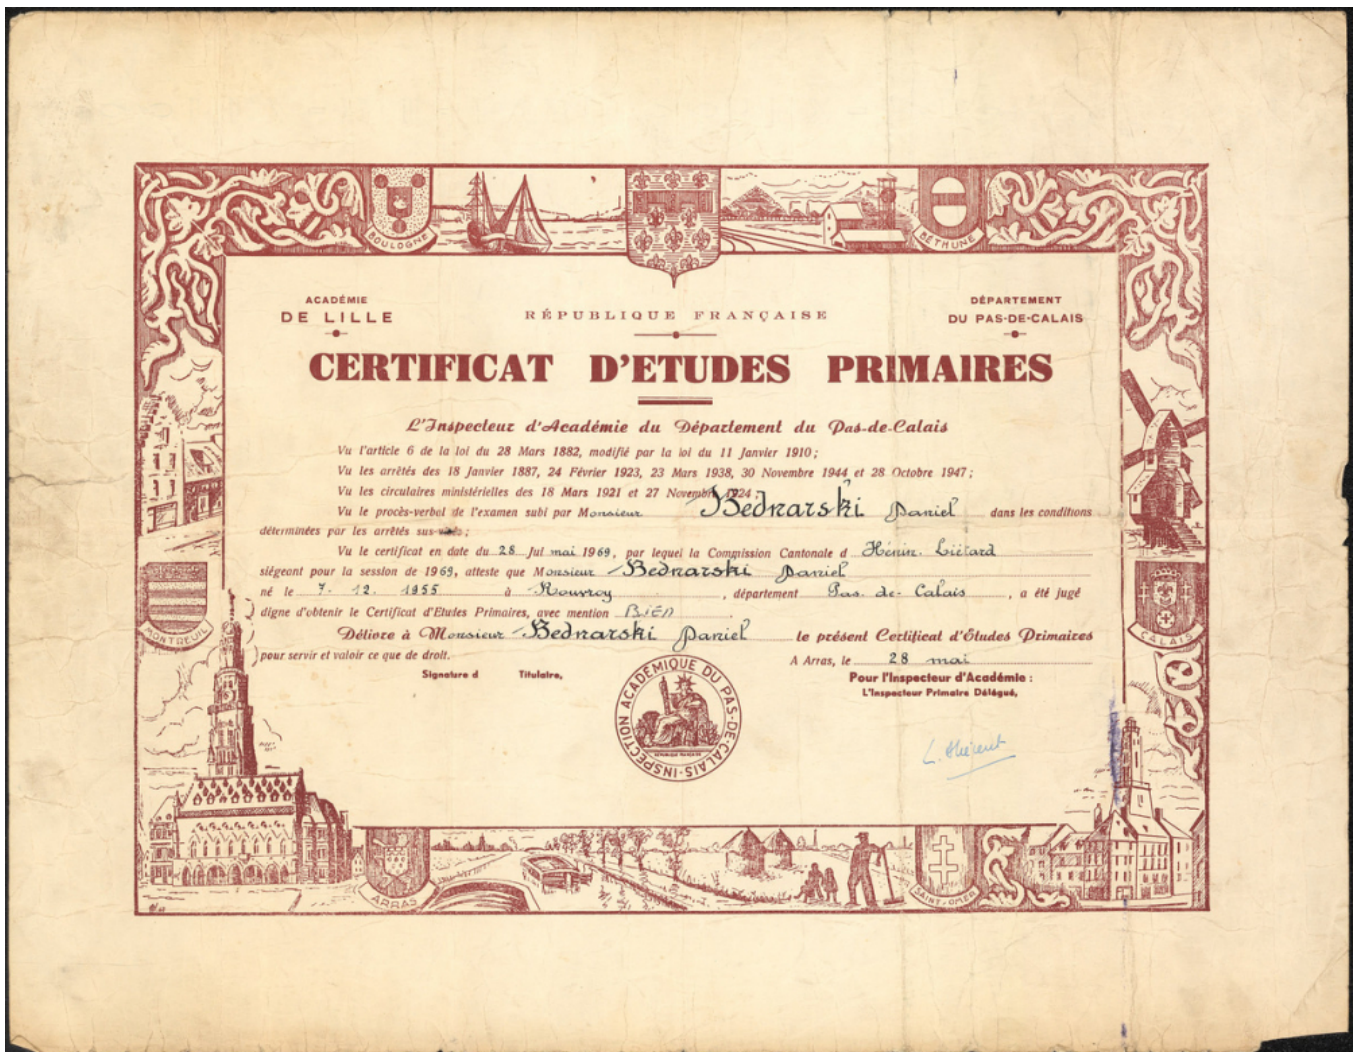 BOULOGNE
BÉTHUNE
ACADÉMIE
DE LILLE
RÉPUBLIQUE FRANÇAISE
DÉPARTEMENT
DU PAS-DE-CALAIS
CERTIFICAT D'ETUDES PRIMAIRES
L'Inspecteur d'Académie du Département du Pas-de-Calais
Vu l'article 6 de la loi du 28 Mars 1882, modifié par la loi du 11 Janvier 1910 ;
Vu les arrêtés des 18 Janvier 1887, 24 Février 1923, 23 Mars 1938, 30 Novembre 1944 et 28 Octobre 1947 ;
Vu les circulaires ministérielles des 18 Mars 1921 et 27 Novembre 1924 ;
Vu le procès-verbal de l'examen subi par Monsieur Bednarski Daniel dans les conditions
déterminées par les arrêtés sus-visés ;
Vu le certificat en date du 28 Jui mai 1969, par lequel la Commission Cantonale d Hénin-Liétard
siégeant pour la session de 1969, atteste que Monsieur Bednarski Daniel
né le 7. 12. 1955 à Rouvroy, département Pas-de-Calais, a été jugé
digne d'obtenir le Certificat d'Etudes Primaires, avec mention BIEN
Délivré à Monsieur Bednarski Daniel le présent Certificat d'Études Primaires
pour servir et valoir ce que de droit.
A Arras, le 28 mai
Signature d Titulaire,
Pour l'Inspecteur d'Académie :
L'Inspecteur Primaire Délégué,
INSPECTION ACADÉMIQUE DU PAS-DE-CALAIS
RÉPUBLIQUE FRANÇAISE
MONTREUIL
CALAIS
ARRAS
SAINT-OMER